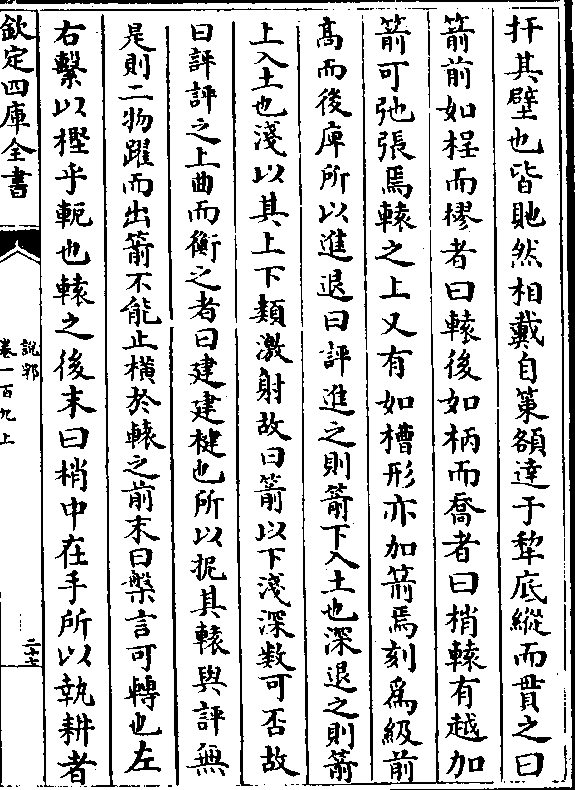 扞其壁也皆貤然相戴自策額達于犂底縱而貫之曰
箭前如桯而樛者曰轅後如柄而喬者曰梢轅有越加
箭可弛張焉轅之上又有如槽形亦加箭焉刻為級前
髙而後庳所以進退曰評進之則箭下入土也深退之則箭
上入土也淺以其上下類激射故曰箭以下淺深数可否故
曰評評之上曲而衡之者曰建建楗也所以抳其轅與評無
是則二物躍而出箭不能止横於轅之前末曰槃言可轉也左
右繫以樫乎軛也轅之後末曰梢中在手所以執耕者
欽定四庫全書
說郛
卷一百九上
二十七